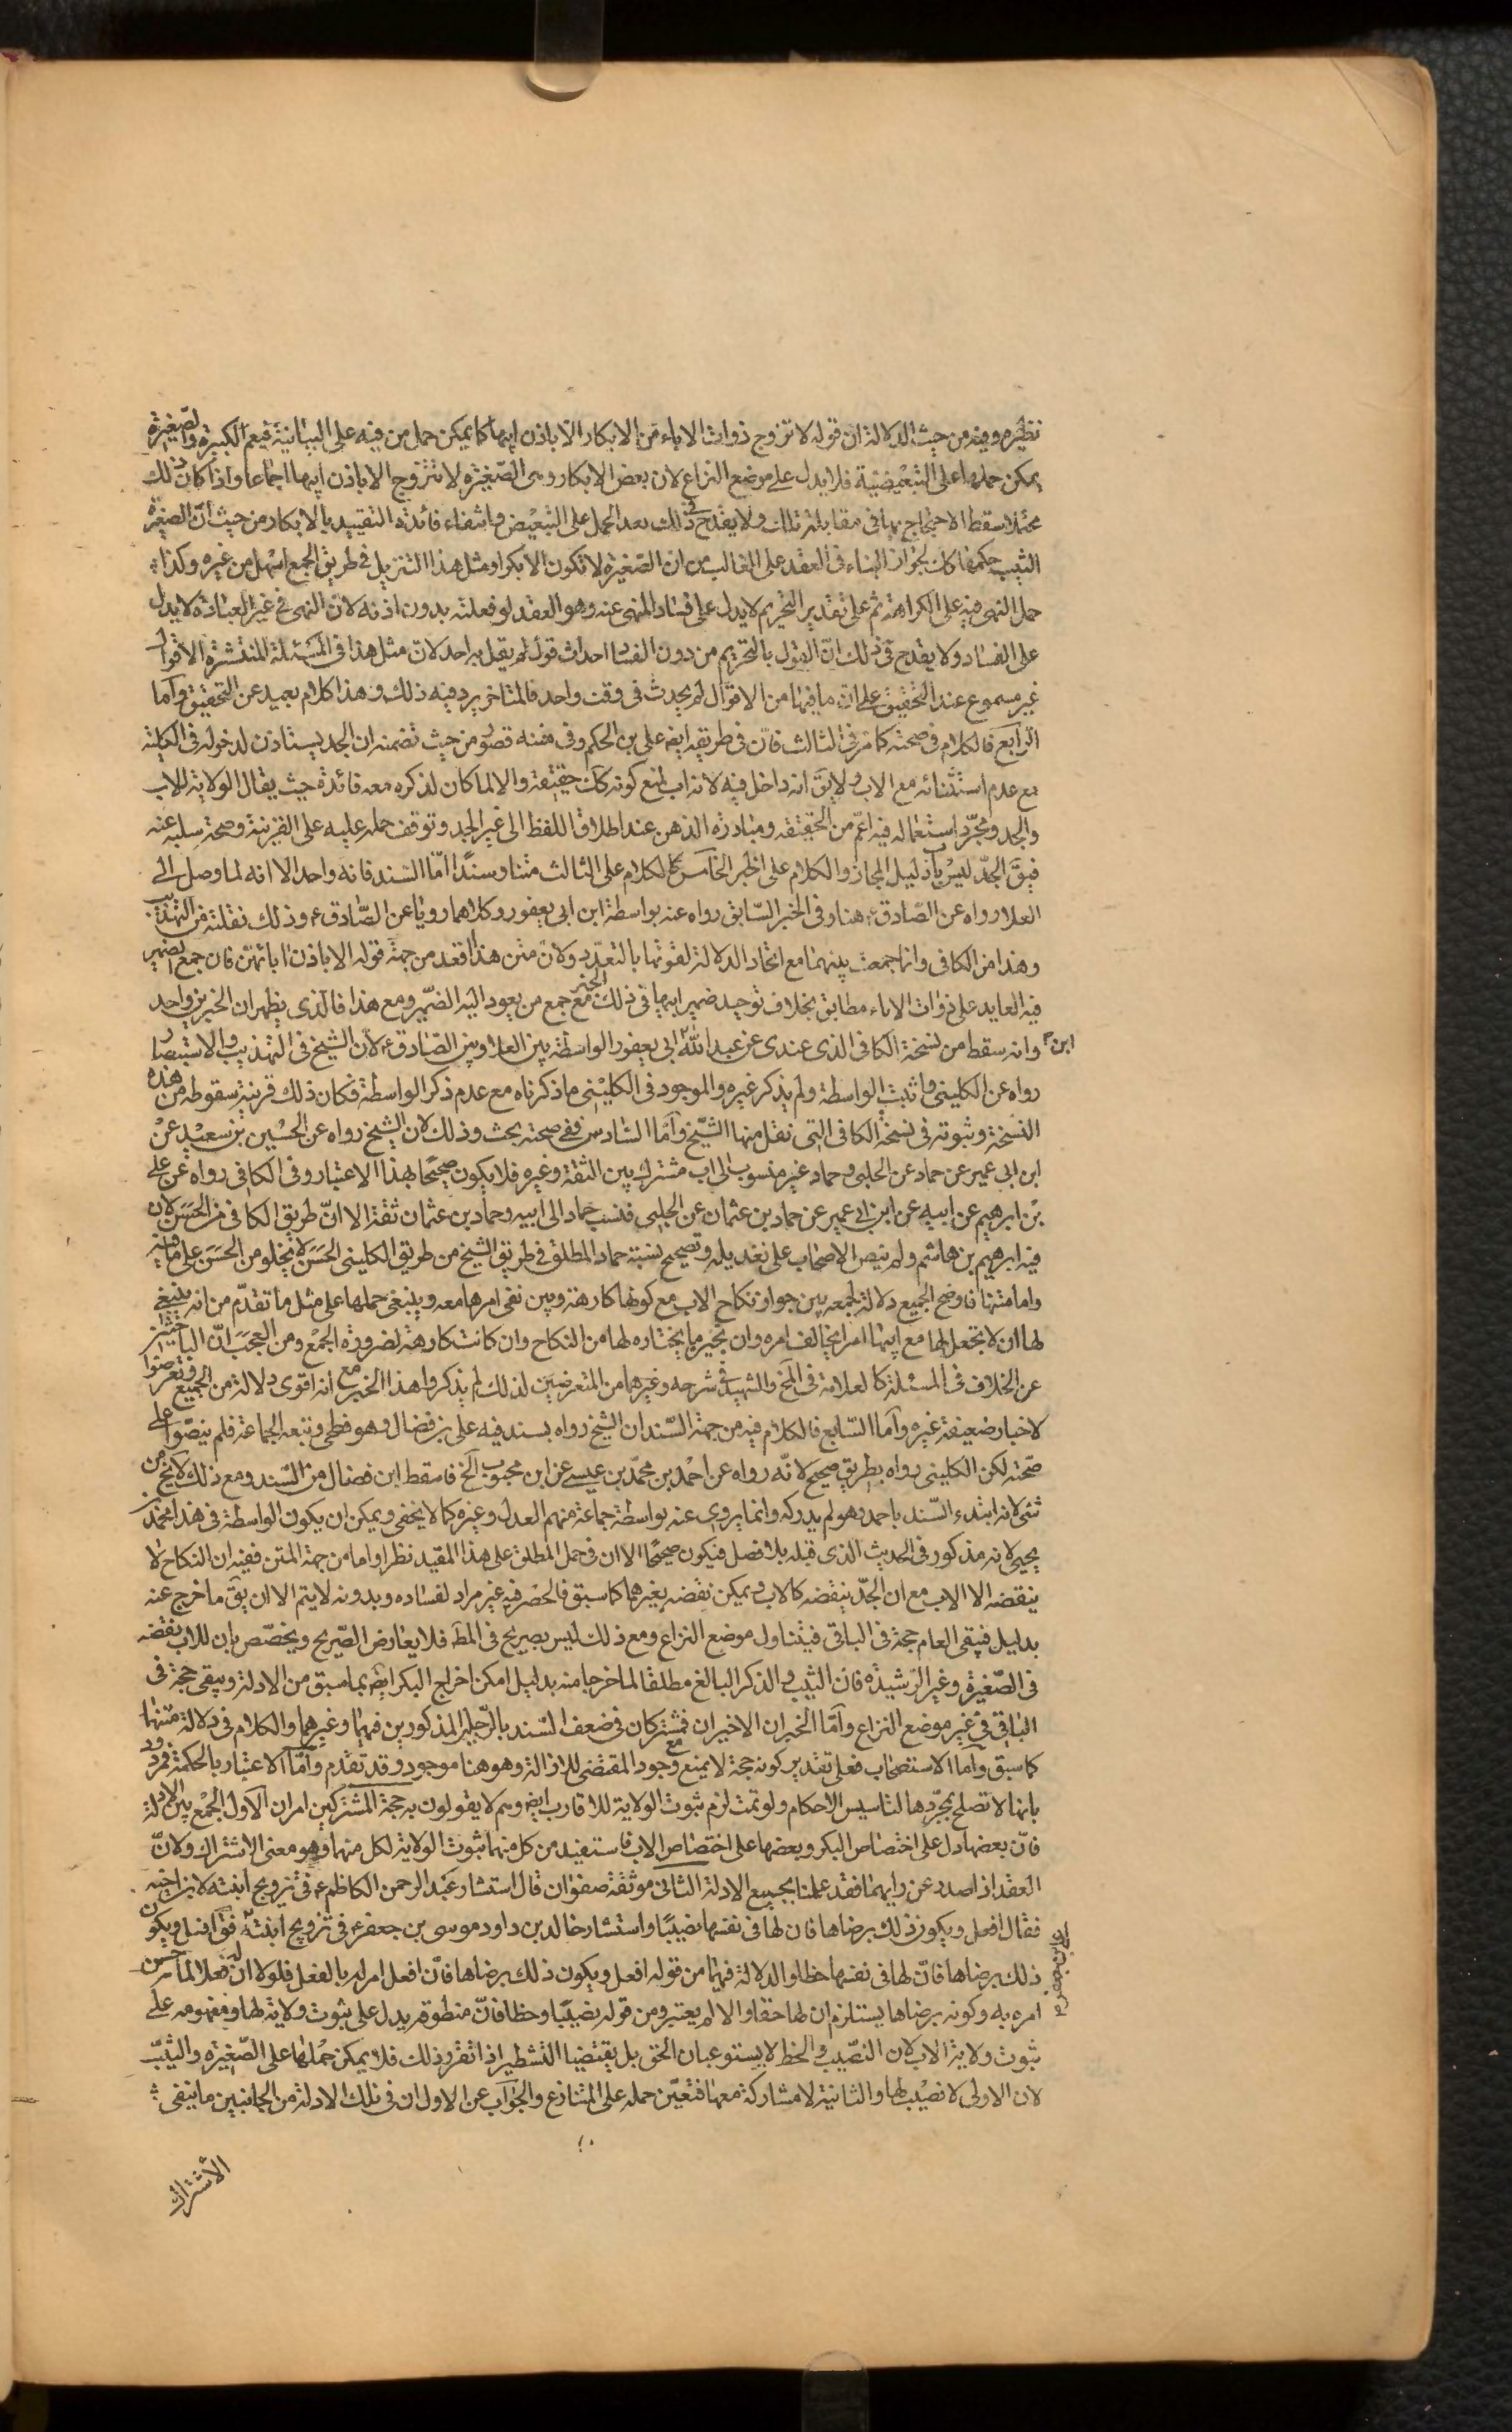 نظيره وفيه من حيث الدلالة ان قوله لا تزوج ذوات الاباء من الابكار الا باذن ابيها كما يمكن حمل من فيه على البيانية فيعم الكبيرة والصغيرة
يمكن حملها على التبعيضية فلا يدل على موضع النزاع لان بعض الابكار وهي الصغيرة لا تتزوج الا باذن ابيها اجماعا واذا كان ذلك
محتملا سقط الاحتجاج بها في مقابلة تلك ولا يقدح في ذلك بعد الحمل على التبعيض وانتفاء فائدة التقييد بالابكار من حيث ان الصغيرة
الثيب حكمها كك لجواز البناء في العقد على الغالب من ان الصغيرة لا تكون الا بكرا ومثل هذا التنزيل في طريق الجمع اسهل من غيره وكذا
حمل النهي فيه على الكراهة ثم على تقدير التحريم لا يدل على فساد المنهي عنه وهو العقد لو فعلته بدون اذنه لان النهي في غير العبادة لا يدل
على الفساد ولا يقدح في ذلك ان القول بالتحريم من دون الفساد احداث قول لم يقل به احد لان مثل هذا في المسئلة المنتشرة الاقوال
غير مسموع عند التحقيق على ان ما فيها من الاقوال لم يحدث في وقت واحد فالمتاخر يرد فيه ذلك وهذا كلام بعيد عن التحقيق واما
الرابع فالكلام في صحته كما مر في الثالث فان في طريقه ايضا علي بن الحكم وفي متنه قصور من حيث تضمنه ان الجد يستاذن لدخوله في الكلية
مع عدم استثنائه مع الاب ولا يق انه داخل فيه لانه اب لمنع كونه كك حقيقة والا لما كان لذكره معه فائدة حيث يقال الولاية للاب
والجد ومجرد استعماله فيه اعم من الحقيقة ومبادرة الذهن عند اطلاق اللفظ الى غير الجد وتوقف حمله عليه على القرينة وصحة سلبه عنه
فيق الجد ليس باب دليل المجاز والكلام على الخبر الخامس كالكلام على الثالث متنا وسندا اما السند فانه واحد الا انه لما وصل الى
العلا رواه عن الصادق ع هنا وفي الخبر السابق رواه عنه بواسطة ابن ابي يعفور وكلاهما رويا عن الصادق ع وذلك نقلته من التهذيب
وهذا من الكافي وانما جمعت بينهما مع اتحاد الدلالة لقوتها بالتعدد ولان متن هذا اقعد من جهة قوله الا باذن ابائهن فان جمع الضمير
فيه العايد على ذوات الاباء مطابق بخلاف توحيد ضمير ابيها في ذلك الخبر مع جمع من يعود اليه الضمير ومع هذا فالذي يظهر ان الخبرين واحد
وانه سقط من نسخة الكافي الذي عندي عن عبد الله ابن ابي يعفور الواسطة بين العلا وبين الصادق ع لان الشيخ في التهذيب والاستبصار
رواه عن الكليني واثبت الواسطة ولم يذكر غيره والموجود في الكليني ما ذكرناه مع عدم ذكر الواسطة فكان ذلك قرينة سقوطه من هذه
النسخة وثبوته في نسخة الكافي التي نقل منها الشيخ واما السادس ففي صحته بحث وذلك لان الشيخ رواه عن الحسين بن سعيد عن
ابن ابي عمير عن حماد عن الحلبي وحماد غير منسوب الى اب مشترك بين الثقة وغيره فلا يكون صحيحا بهذا الاعتبار وفي الكافي رواه عن علي
بن ابرهيم عن ابيه عن ابن ابي عمير عن حماد بن عثمان عن الحلبي فنسب حماد الى ابيه وحماد بن عثمان ثقة الا ان طريق الكافي من الحسن لان
فيه ابرهيم بن هاشم ولم ينص الاصحاب على تعديله وتصحيح نسبة حماد المطلق في طريق الشيخ من طريق الكليني الحسن لا يخلو من الحسن على ما فيه
واما متنها فاوضح الجميع دلالة لجمعه بين جواز نكاح الاب مع كونها كارهة وبين نفي امرها معه وينبغي حملها على مثل ما تقدم من انه ينبغي
لها ان لا تجعل لها مع ابيها امرا يخالف امره وان تجيز ما يختاره لها من النكاح وان كانت كارهة لضرورة الجمع ومن العجب ان الباحثين
عن الخلاف في المسئلة كالعلامة في المخ والشهيد في شرحه وغيرهما من المتعرضين لذلك لم يذكروا هذا الخبر مع انه اقوى دلالة من الجميع وتعرضوا
لاخبار ضعيفة غيره واما السابع فالكلام فيه من جهة السند ان الشيخ رواه بسند فيه علي بن فضال وهو فطحي وتبعه الجماعة فلم ينصوا على
صحته لكن الكليني رواه بطريق صحيح لانه رواه عن احمد بن محمد بن عيسى عن ابن محبوب الخ فاسقط ابن فضال من السند ومع ذلك لا يخ من
شئ لانه ابتدء السند باحمد وهو لم يدركه وانما يروي عنه بواسطة جماعة منهم العدل وغيره كما لا يخفى ويمكن ان يكون الواسطة في هذا محمد بن
يحيى لانه مذكور في الحديث الذي قبله بلا فصل فيكون صحيحا الا ان في حمل المطلق على هذا المقيد نظرا واما من جهة المتن ففيه ان النكاح لا
ينقضه الا الاب مع ان الجد ينقضه كالاب ويمكن نقضه بغيرهما كما سبق فالحصر فيه غير مراد لفساده وبدونه لا يتم الا ان يق ما خرج عنه
بدليل فيبقى العام حجة في الباقي فيتناول موضع النزاع ومع ذلك ليس بصريح في المط فلا يعارض الصريح ويخصص بان للاب نقضه
في الصغيرة وغير الرشيدة فان الثيب والذكر البالغ مطلقا لما خرجا منه بدليل امكن اخراج البكر ايضا بما سبق من الادلة ويبقى حجة في
الباقي في غير موضع النزاع واما الخبران الاخيران فمشتركان في ضعف السند بالرجلين المذكورين فيهما وغيرهما والكلام في دلالة متنها
كما سبق واما الاستصحاب فعلى تقدير كونه حجة لا يمنع مع وجود المقتضي للازالة وهو هنا موجود وقد تقدم واما الاعتبار بالحكمة فمردود
بانها لا تصلح بمجردها لتاسيس الاحكام ولو تمت لزم ثبوت الولاية للاقارب ايضا وهم لا يقولون به حجة المشتركين امران الاول الجمع بين الادلة
فان بعضها دل على اختصاص البكر وبعضها على اختصاص الاب فاستفيد من كل منهما ثبوت الولاية لكل منهما وهو معنى الاشتراك ولان
العقد اذا صدر عن رايهما فقد عملنا بجميع الادلة الثاني موثقة صفوان قال استشار عبد الرحمن الكاظم ع في تزويج ابنته لابن اخيه
فقال افعل ويكون ذلك برضاها فان لها في نفسها نصيبا واستشار خالد بن داود موسى بن جعفر ع في تزويج ابنته فق افعل ويكون
ذلك برضاها فان لها في نفسها حظا والدلالة فيهما من قوله افعل ويكون ذلك برضاها فان افعل امر له بالفعل فلولا ان له فعلا لما حسن
امره به وكونه برضاها يستلزم ان لها حقا والا لم يعتبر ومن قوله نصيبا وحظا فان منطوقه يدل على ثبوت ولاية لها ومفهومه على
ثبوت ولاية الاب لان النصيب والحظ لا يستوعبان الحق بل يقتضيا التشطير اذا تقرر ذلك فلا يمكن حملها على الصغيرة والثيب
لان الاولى لا نصيب لها والثانية لا مشاركة معها فتعين حمله على المتنازع والجواب عن الاول ان في تلك الادلة من الجانبين ما ينفي
الاشتراك